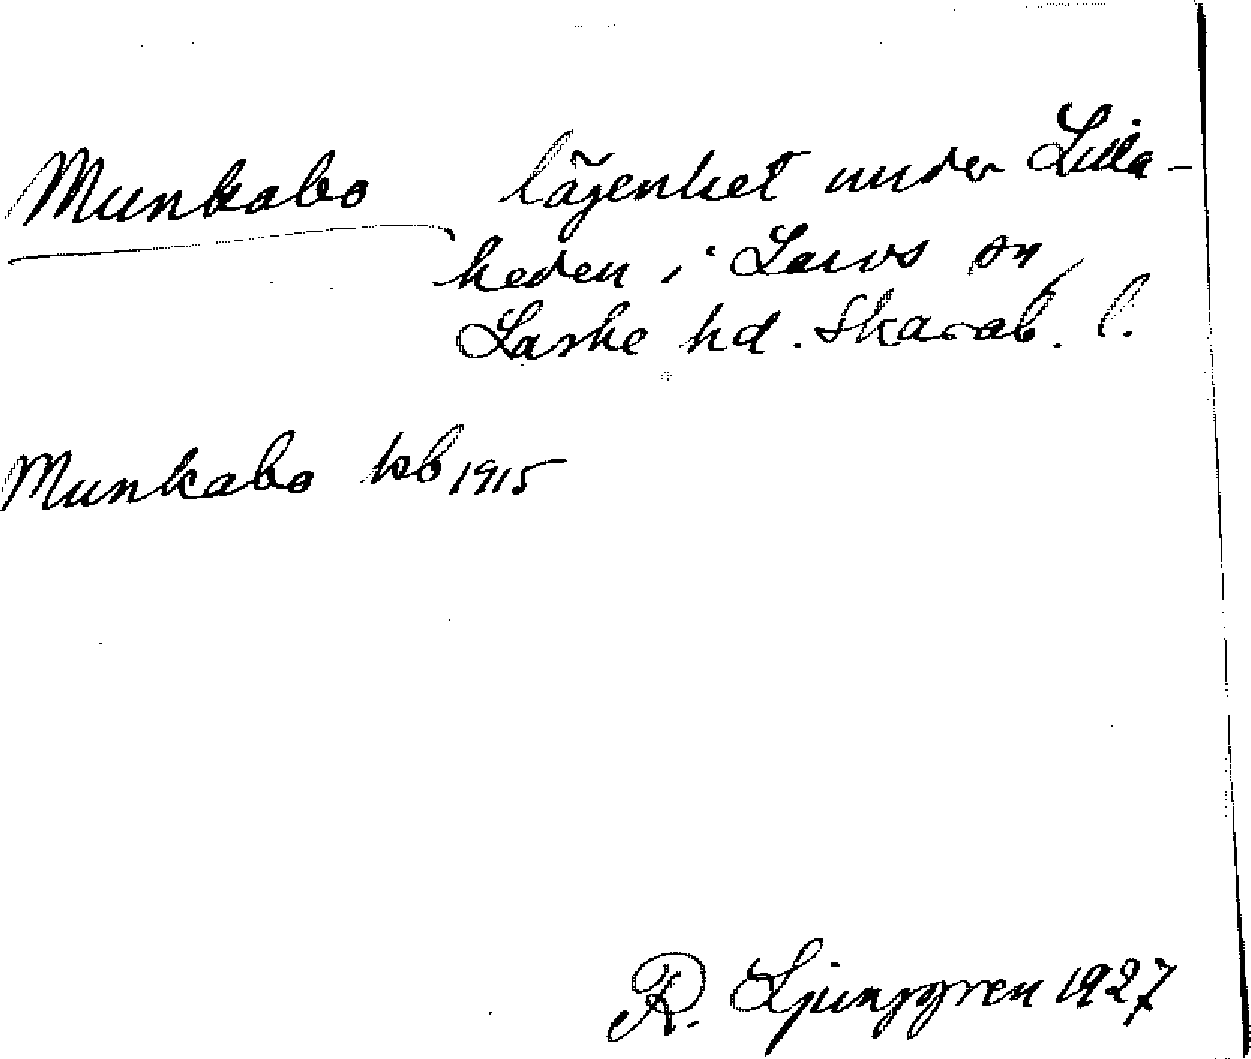 Munkabo lägenhet under Lilla-
heden i Larvs sn
Laske hd. Skarab. l.
Munkabo kb 1915
R. Ljunggren 1927